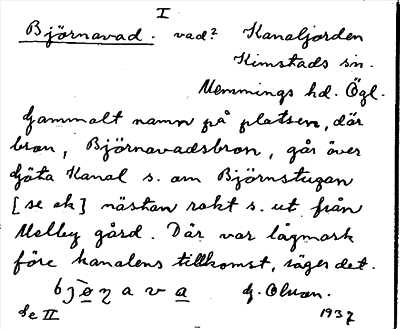 I
Björnavad. vad? Kanaljorden
Kimstads sn.
Memmings hd. Ögl.
Gammalt namn på platsen, där
bron, Björnavadsbron, går över
Göta Kanal s. om Björnstugan
[se ek] nästan rakt s. ut från
Melby gård. Där var lågmark
före kanalens tillkomst, säges det.
bjönava G. Olson.
Se II 1937